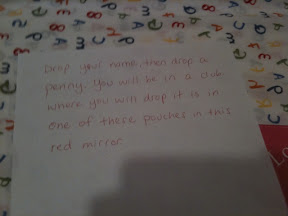 Drop your name, then drop a
penny. You will be in a club.
Where you will drop it is in
one of these pouches in this
red mirror
Lo